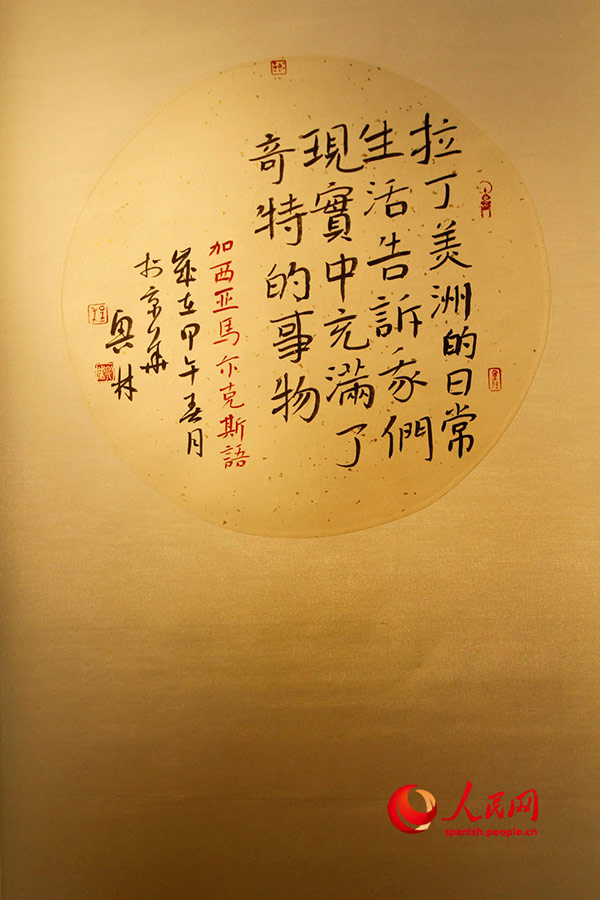 拉丁美洲的日常
生活告訴我們
現實中充滿了
奇特的事物
加西亚馬尔克斯語
歲在甲午春月
於京華
奥林
人民网
spanish.people.cn